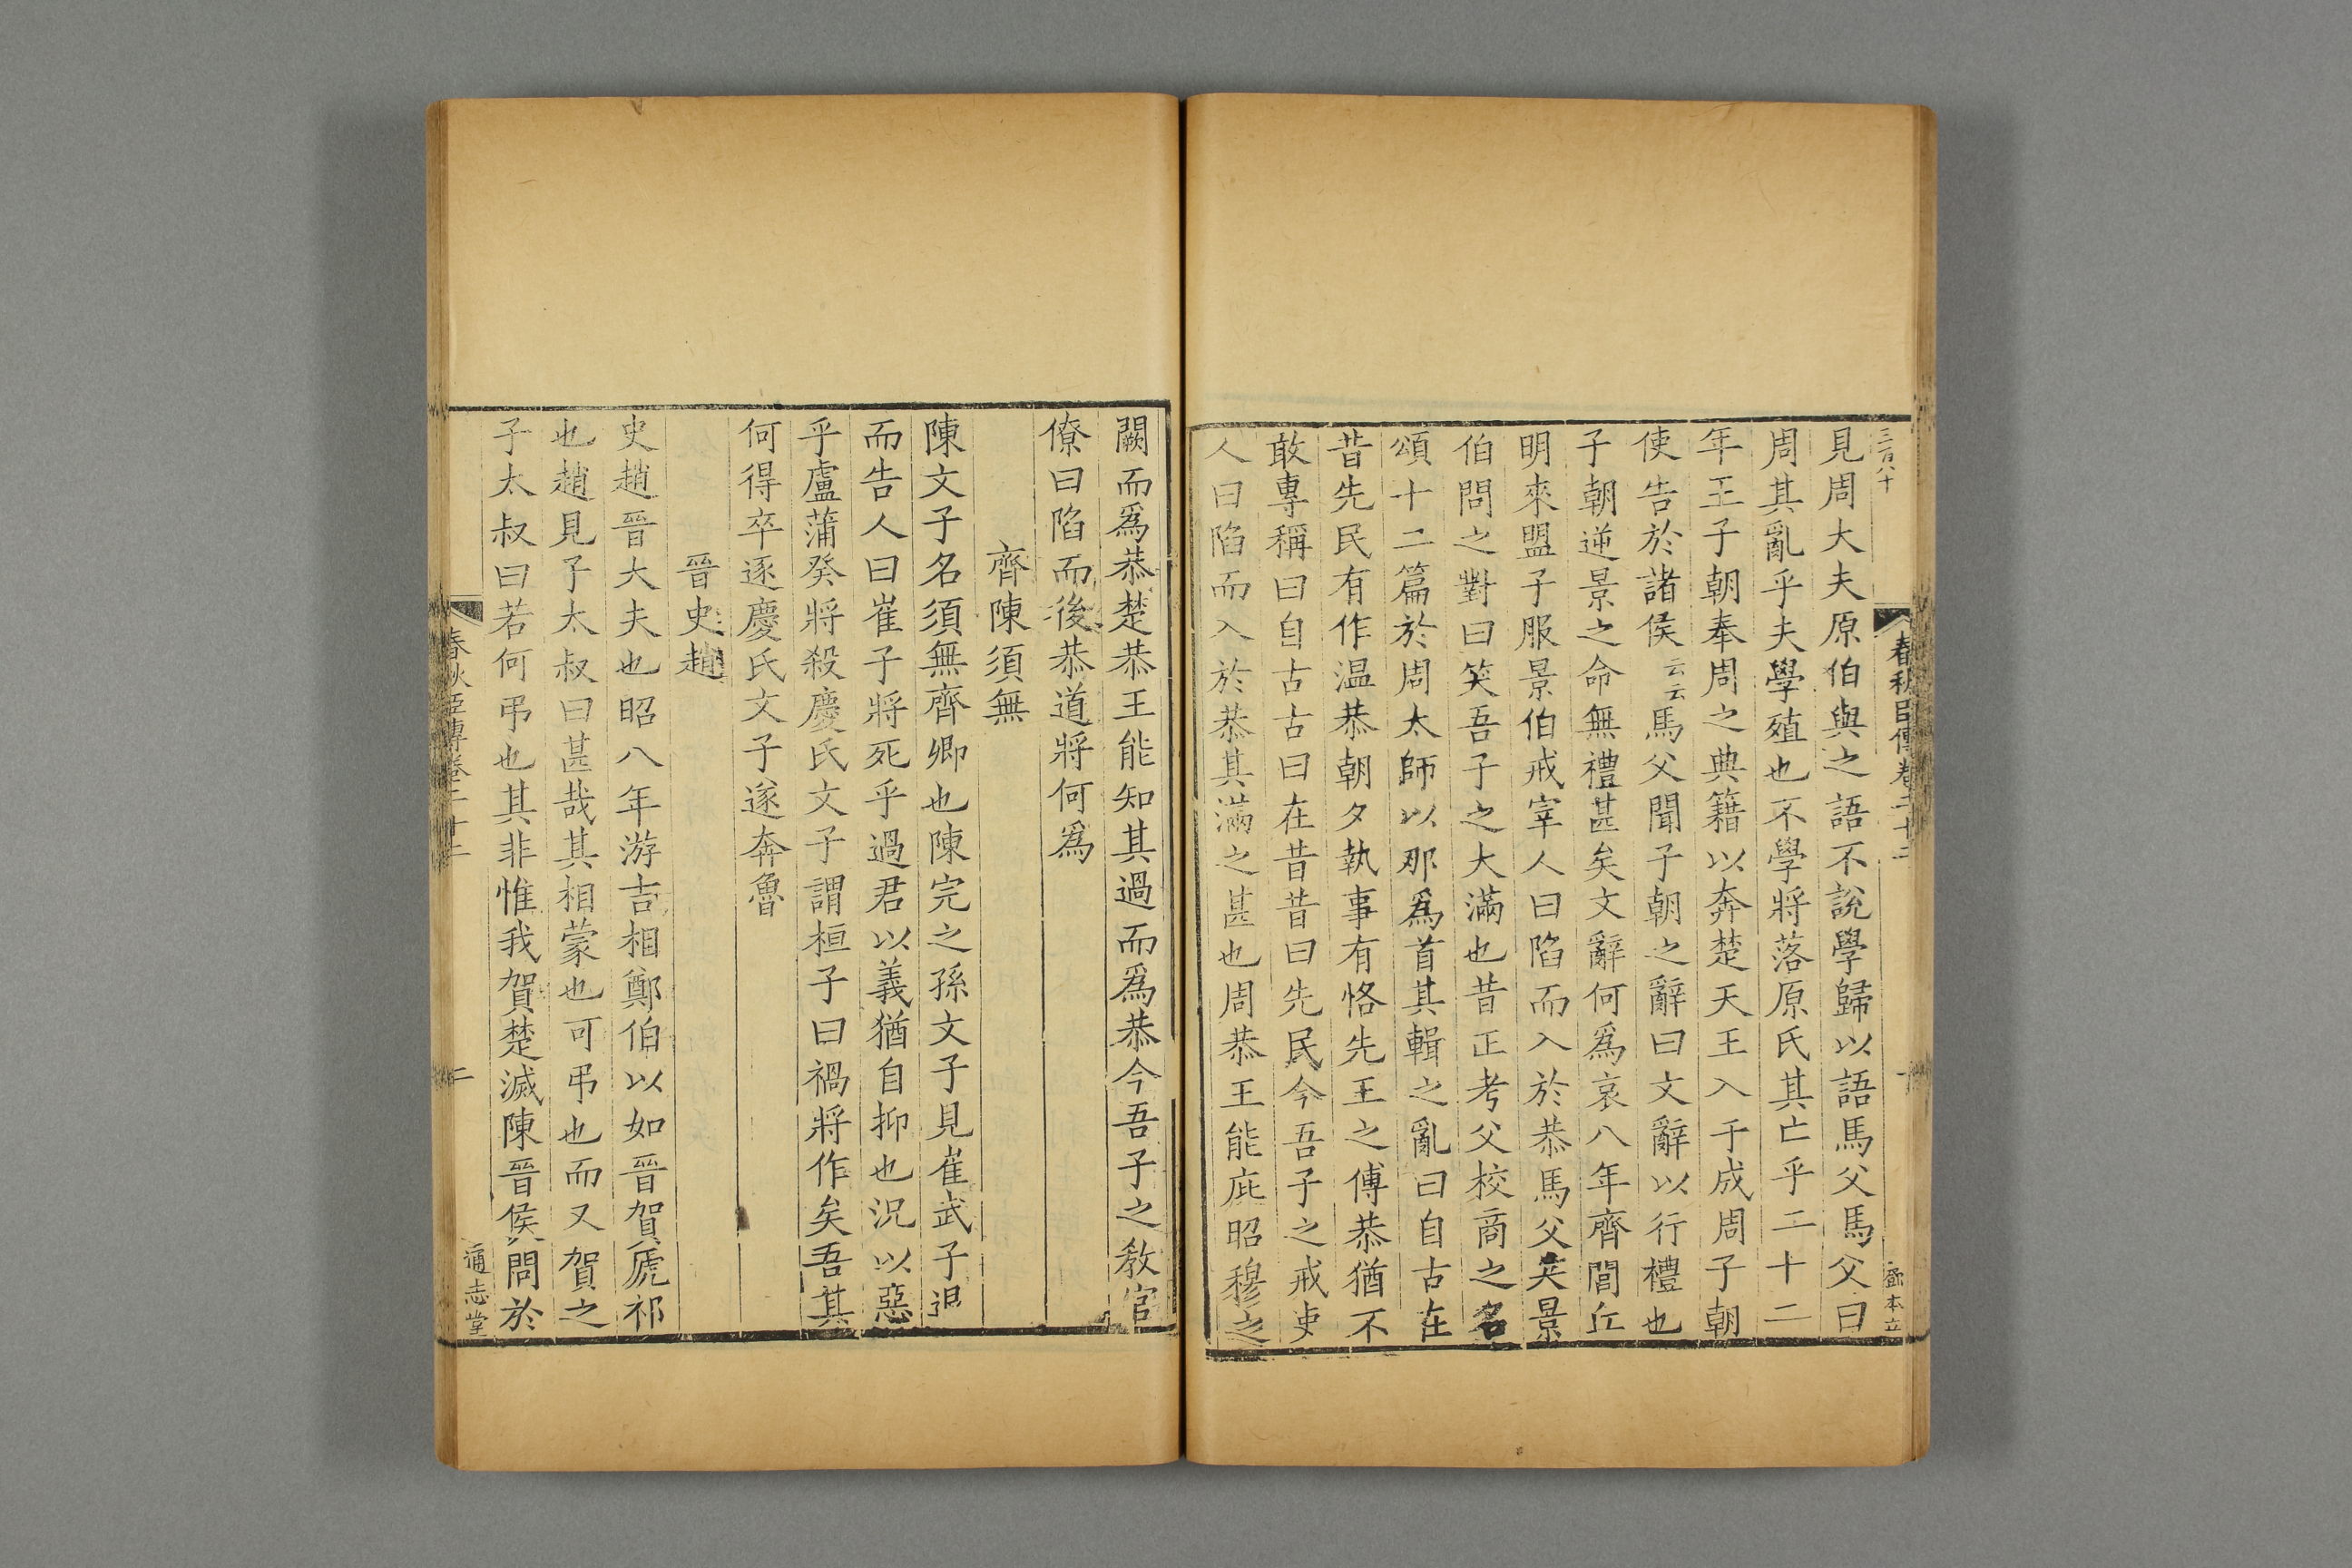 三百八十
春秋臣傳卷二十二
一
鄧本立
見周大夫原伯與之語不說學歸以語馬父馬父曰
周其亂乎夫學殖也不學將落原氏其亡乎二十二
年王子朝奉周之典籍以奔楚天王入于成周子朝
使告於諸侯云云馬父聞子朝之辭曰文辭以行禮也
子朝逆景之命無禮甚矣文辭何爲哀八年齊閭丘
明來盟子服景伯戒宰人曰陷而入於恭馬父笑景
伯問之對曰笑吾子之大滿也昔正考父校商之名
頌十二篇於周太師以那爲首其輯之亂曰自古在
昔先民有作温恭朝夕執事有恪先王之傅恭猶不
敢專稱曰自古古曰在昔昔曰先民今吾子之戒吏
人曰陷而入於恭其滿之甚也周恭王能庇昭穆之
闕而爲恭楚恭王能知其過而爲恭今吾子之敎官
僚曰陷而後恭道將何爲
齊陳須無
陳文子名須無齊卿也陳完之孫文子見崔武子退
而告人曰崔子將死乎過君以義猶自抑也況以惡
乎盧蒲癸將殺慶氏文子謂桓子曰禍將作矣吾其
何得卒逐慶氏文子遂奔魯
晉史趙
史趙晉大夫也昭八年游吉相鄭伯以如晉賀虒祁
也趙見子太叔曰甚哉其相蒙也可弔也而又賀之
子太叔曰若何弔也其非惟我賀楚滅陳晉侯問於
春秋臣傳卷二十二
二
通志堂